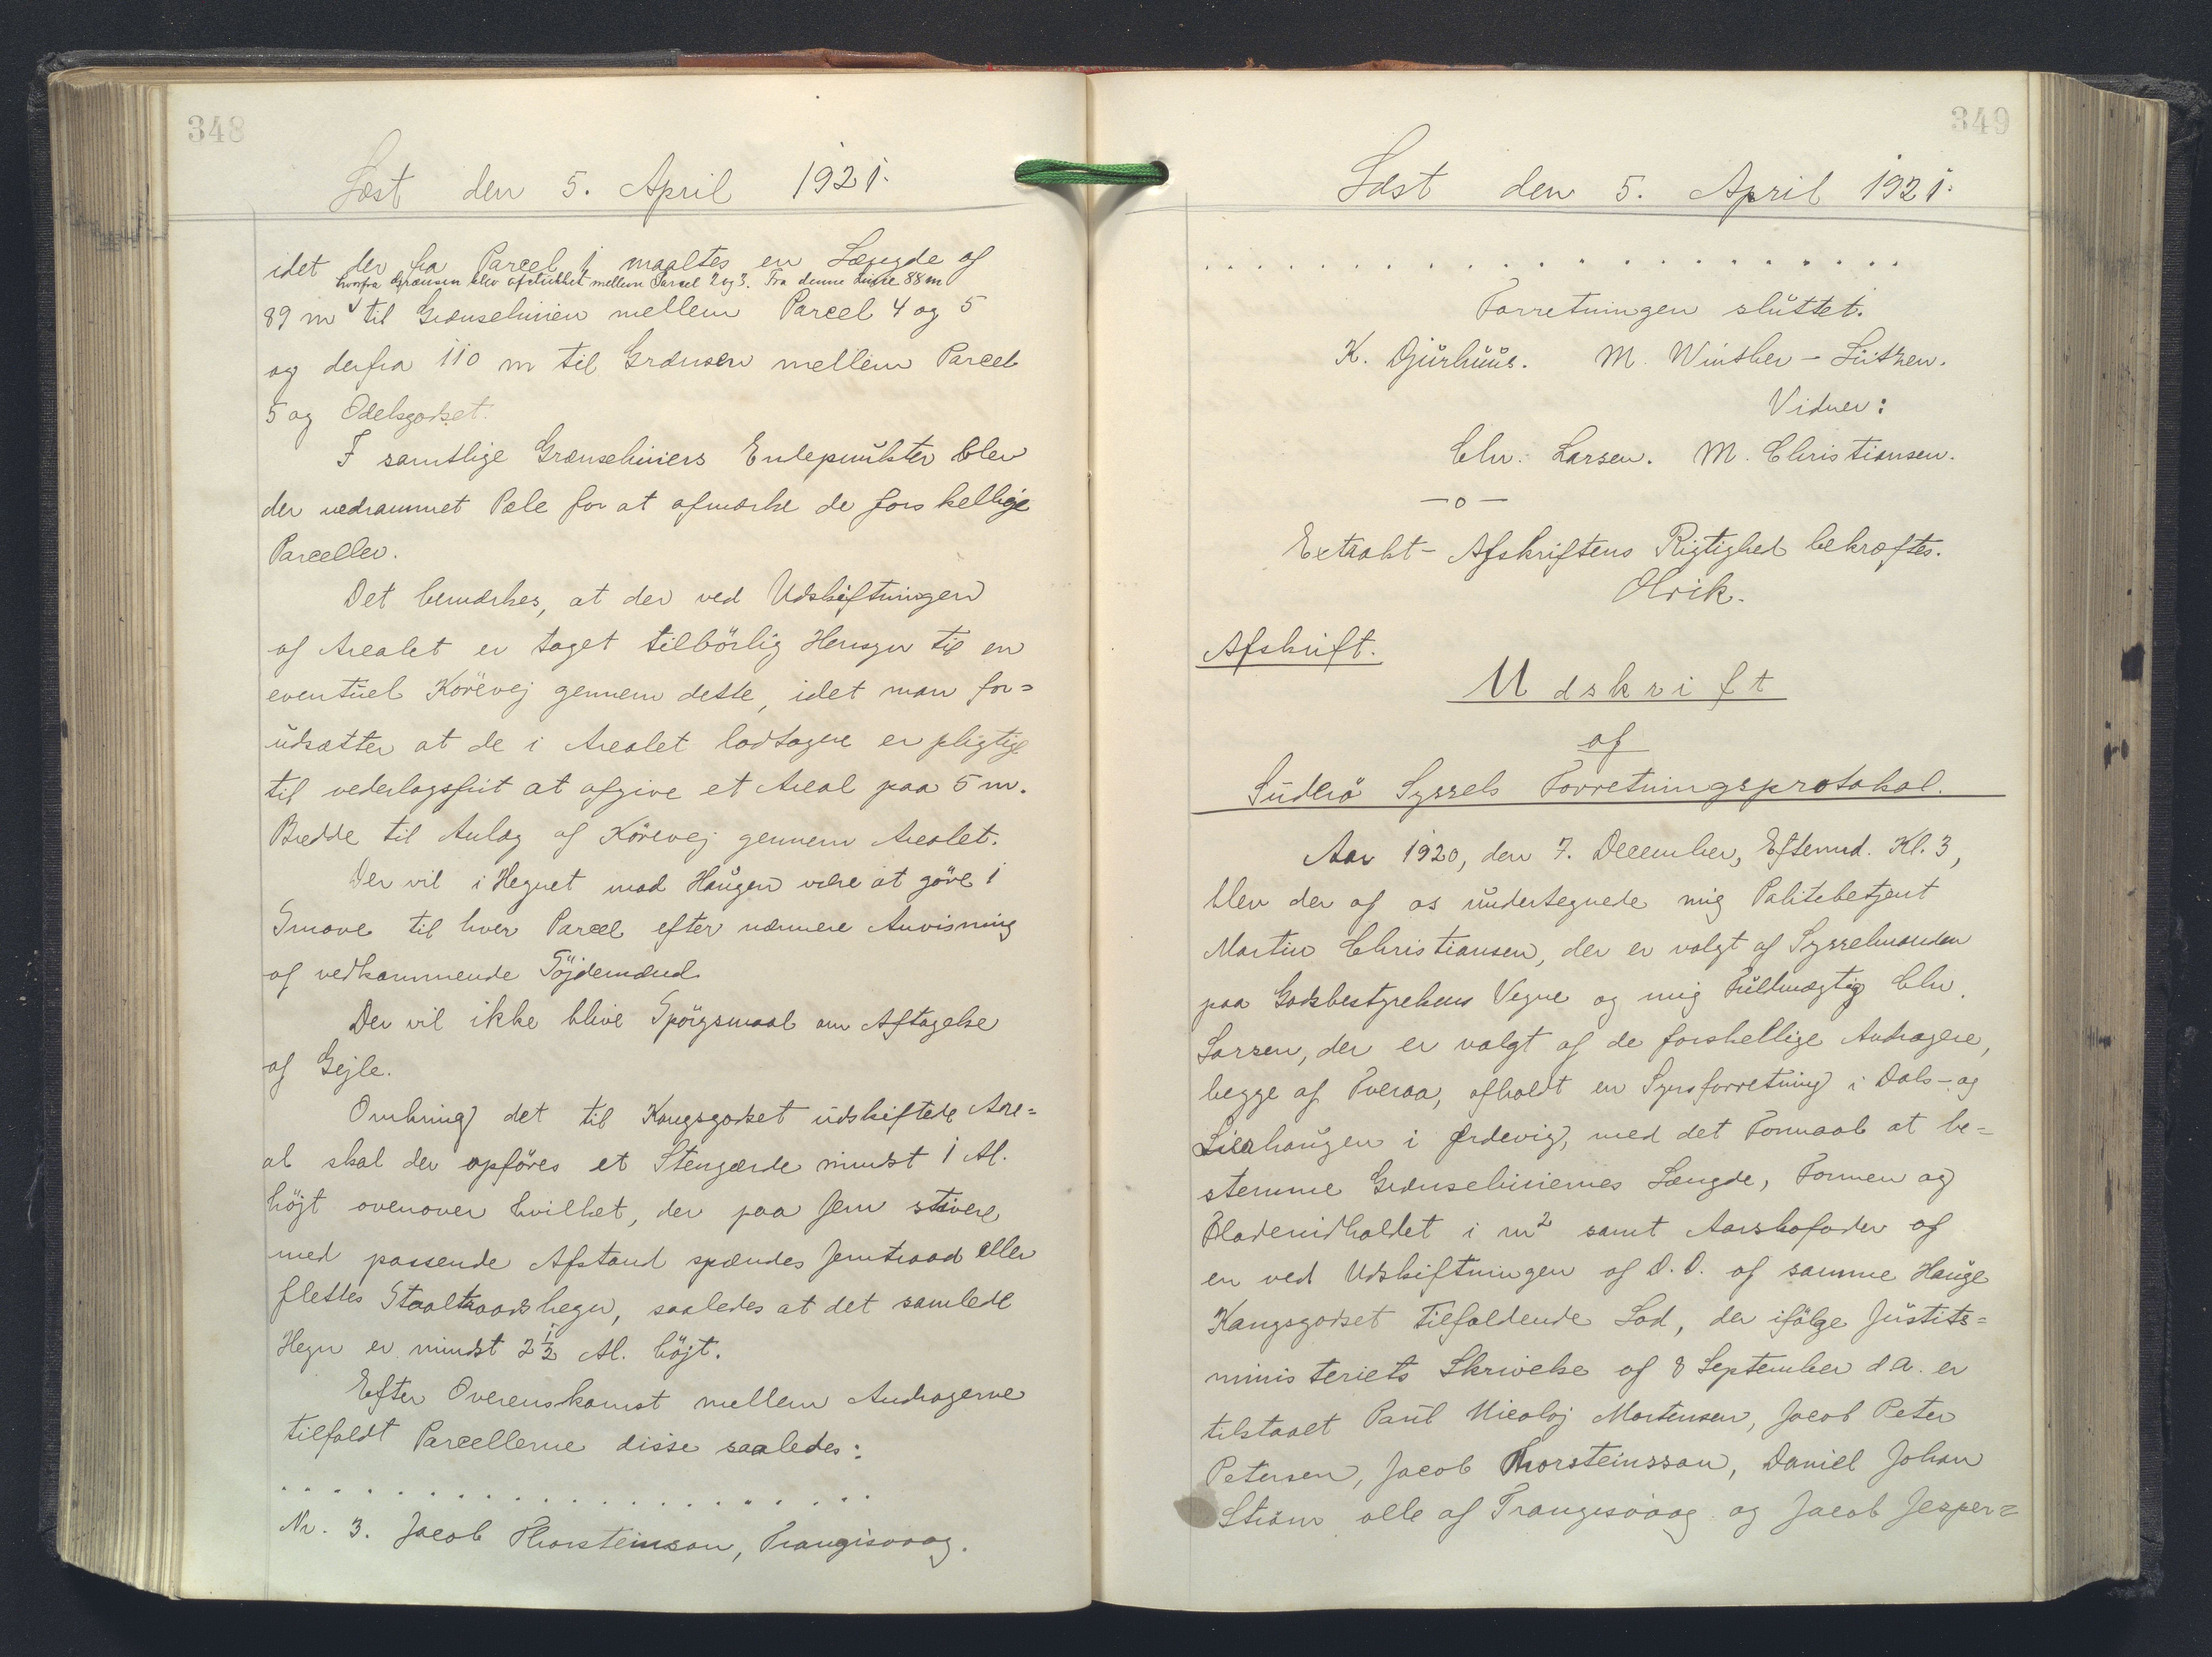 348
Læst den 5. April 1921.
idet der fra Parcel 1 maaltes en Længde af
hvorfra Grænsen blev afstukket mellem Parcel 2 og 3. Fra denne Linie 88 m
89 m til Grænselinien mellem Parcel 4 og 5
og derfra 110 m til Grænsen mellem Parcel
5 og Odelsgodset.
I samtlige Grænseliniers Endepunkter blev
der nedrammet Pæle for at afmærke de forskellige
Parceller.
Det bemærkes, at der ved Udskiftningen
af Arealet er taget tilbörlig Hensyn til en
eventuel Körevej gennem dette, idet man for=
udsætter at de i Arealet lodtagere er pligtige
til vederlagsfrit at afgive et Areal paa 5 m.
Bredde til Anlæg af Körevej gennem Arealet.
Der vil i Hegnet mod Haugen være at göre 1
Smove til hver Parcel efter nærmere Anvisning
af vedkommende Töjdemænd.
Der vil ikke blive Spörgsmaal om Aftagelse
af Gejle.
Omkring det til Kongsgodset udskiftede Are=
al skal der opföres et Stengærde mindst 1 Al.
höjt ovenover hvilket, der paa Jern stivere
med passende Afstand spændes Jerntraad eller
flettes Staaltraadshegn, saaledes at det samlede
Hegn er mindst 2 1/2 Al. höjt.
Efter Overenskomst mellem Andragerne
tilfaldt Parcellerne disse saaledes:
. . . . . . . . . . . . . . . . . . . . .
Nr. 3. Jacob Thorsteinson, Trangisvaag.
349
Læst den 5. April 1921.
. . . . . . . . . . . . . . . . . . . . . . . .
Forretningen sluttet.
K. Djurhuus. M. Winther-Lützen.
Vidner:
Chr. Larsen. M. Christiansen.
—o—
Extrakt-Afskriftens Rigtighed bekræftes.
Olrik.
Afskrift.
Udskrift
af
Suderö Syssels Forretningsprotokol.
Aar 1920, den 7. December, Eftermd. Kl. 3,
blev der af os undertegnede mig Politibetjent
Martin Christiansen, der er valgt af Sysselmanden
paa Godsbestyrelsens Vegne og mig Fuldmægtig Chr.
Larsen, der er valgt af de forskellige Andragere,
begge af Tveraa, afholdt en Synsforretning i Dals- og
Lierhaugen i Ördevig, med det Formaal at be=
stemme Grænseliniernes Længde, Formen og
Fladeindholdet i m² samt Aarskofoder af
en ved Udskiftningen af D. D. af samme Hauge
Kongsgodset tilfaldende Lod, der ifölge Justits=
ministeriets Skrivelse af 8 September d A. er
tilstaaet Paul Nicolaj Mortensen, Jacob Peter
Petersen, Jacob Thorsteinsson, Daniel Johan
Ström alle af Trangisvaag og Jacob Jesper=